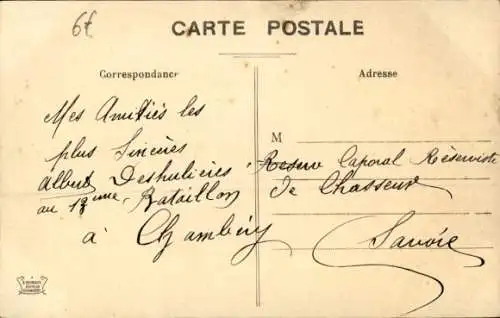 6€
CARTE POSTALE
Correspondance
Adresse
Mes Amitiés les
plus Sincères
Albert Deshulières
au 13ème Bataillon
à Chambéry
M
Reserv Caporal Réserviste
de Chasseur
Savoie